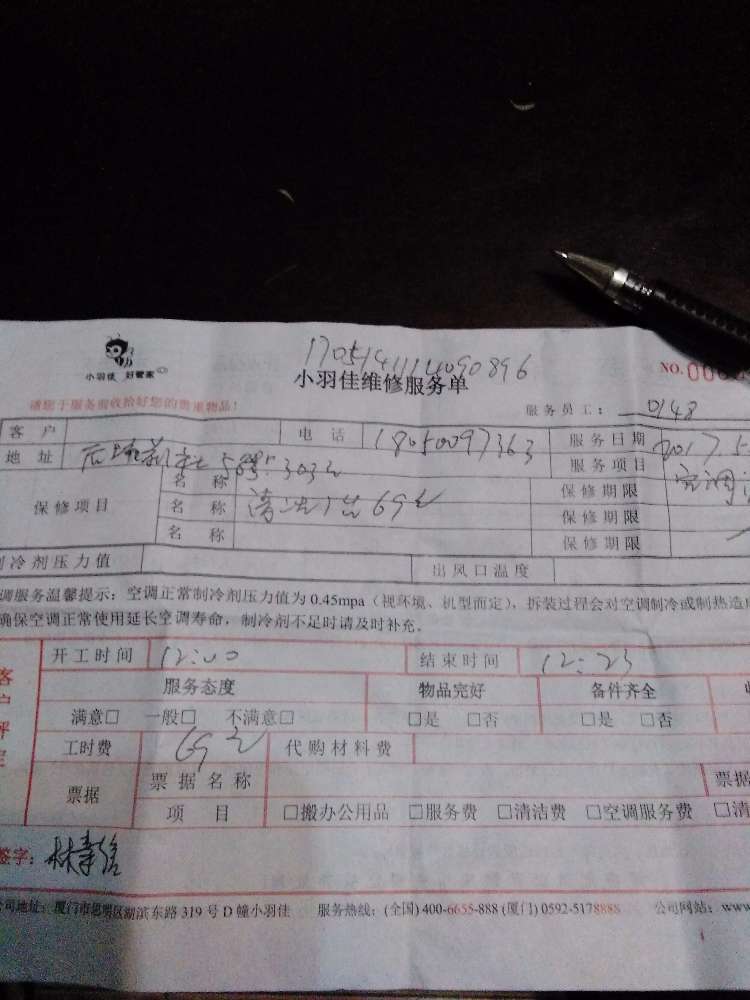 小羽佳 好管家
1705141114090896
小羽佳维修服务单
NO.00
请您于服务前收拾好您的贵重物品!
服务员工: 0148
客户 电话 18050097363 服务日期 2017.5
地址 303 服务项目 空调
保修项目 名称 清洗1台69元 保修期限
名称 保修期限
名称 保修期限
冷剂压力值 出风口温度
调服务温馨提示:空调正常制冷剂压力值为0.45mpa(视环境、机型而定),拆装过程会对空调制冷或制热造
确保空调正常使用延长空调寿命,制冷剂不足时请及时补充。
客户评定
开工时间 12:00 结束时间 12:23
服务态度 物品完好 备件齐全
满意□ 一般□ 不满意□ □是 □否 □是 □否
工时费 69元 代购材料费
票据 票据名称 票据
项目 □搬办公用品 □服务费 □清洁费 □空调服务费 □清
签字:
公司地址:厦门市思明区湖滨东路319号D幢小羽佳 服务热线:(全国)400-6655-888(厦门)0592-5178888 公司网站:www